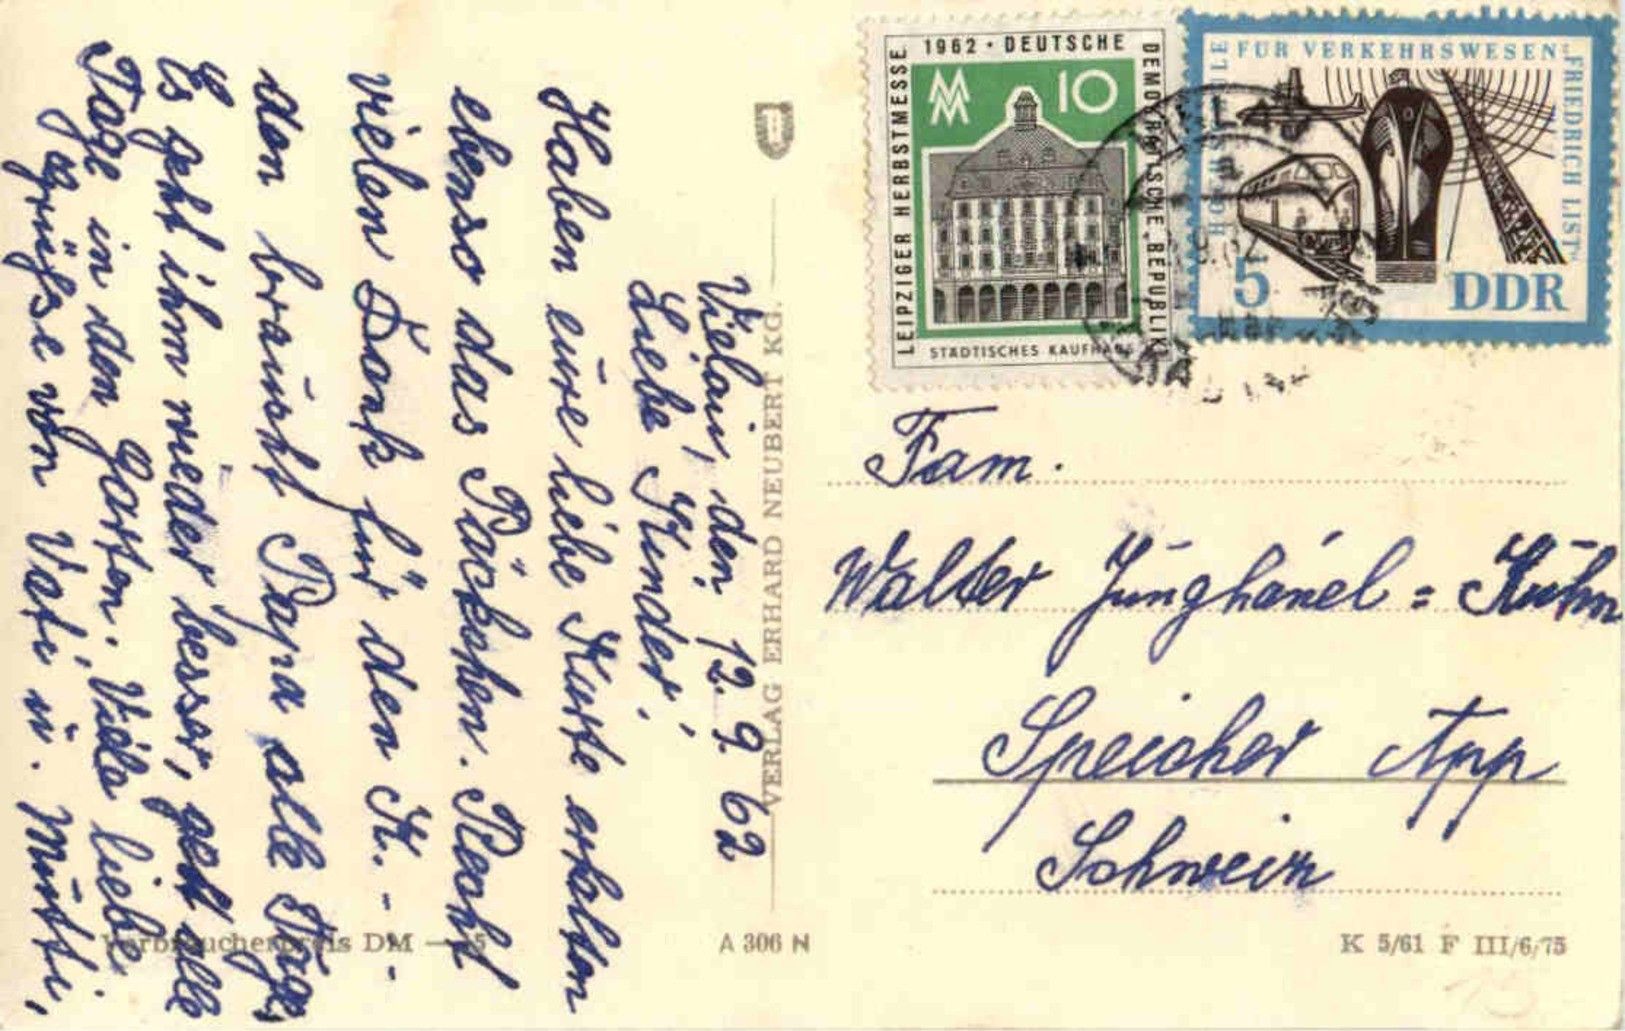 Vielau, den 12.9.62
Liebe Kinder!
Haben eure liebe Karte erhalten
ebenso das Päckchen. Recht
vielen Dank für den K. - -
den braucht Papa alle Tage,
Es geht ihm wieder besser, geht alle
Tage in den Garten. Viele liebe
Grüße von Vati u. Mutti,
VERLAG ERHARD NEUBERT KG.
Verbraucherpreis DM
A 306 N
1962 · DEUTSCHE
DEMOKRATISCHE REPUBLIK
LEIPZIGER HERBSTMESSE
MM
10
STÄDTISCHES KAUFHAUS
HOCHSCHULE
FÜR VERKEHRSWESEN
„FRIEDRICH LIST“
5
DDR
Fam.
Walter Junghänel = Kuhn
Speicher App
Schweiz
K 5/61 F III/6/75